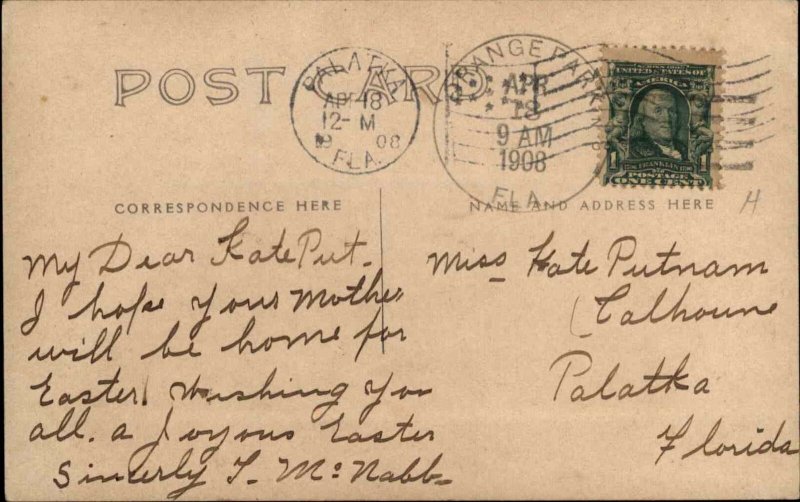 POST CARD
PALATKA
APR 18
12- M
19 08
FLA.
ORANGE PARK
APR
18
9 AM
1908
FLA.
UNITED STATES OF
AMERICA
FRANKLIN
1 1
POSTAGE
ONE CENT
H
CORRESPONDENCE HERE
NAME AND ADDRESS HERE
My Dear Kate Put-
I hope your Mother
will be home for
Easter. Wishing you
all. a Joyous Easter
Sincerly T. McNabb-
Miss Kate Putnam
Calhoune
Palatka
Florida